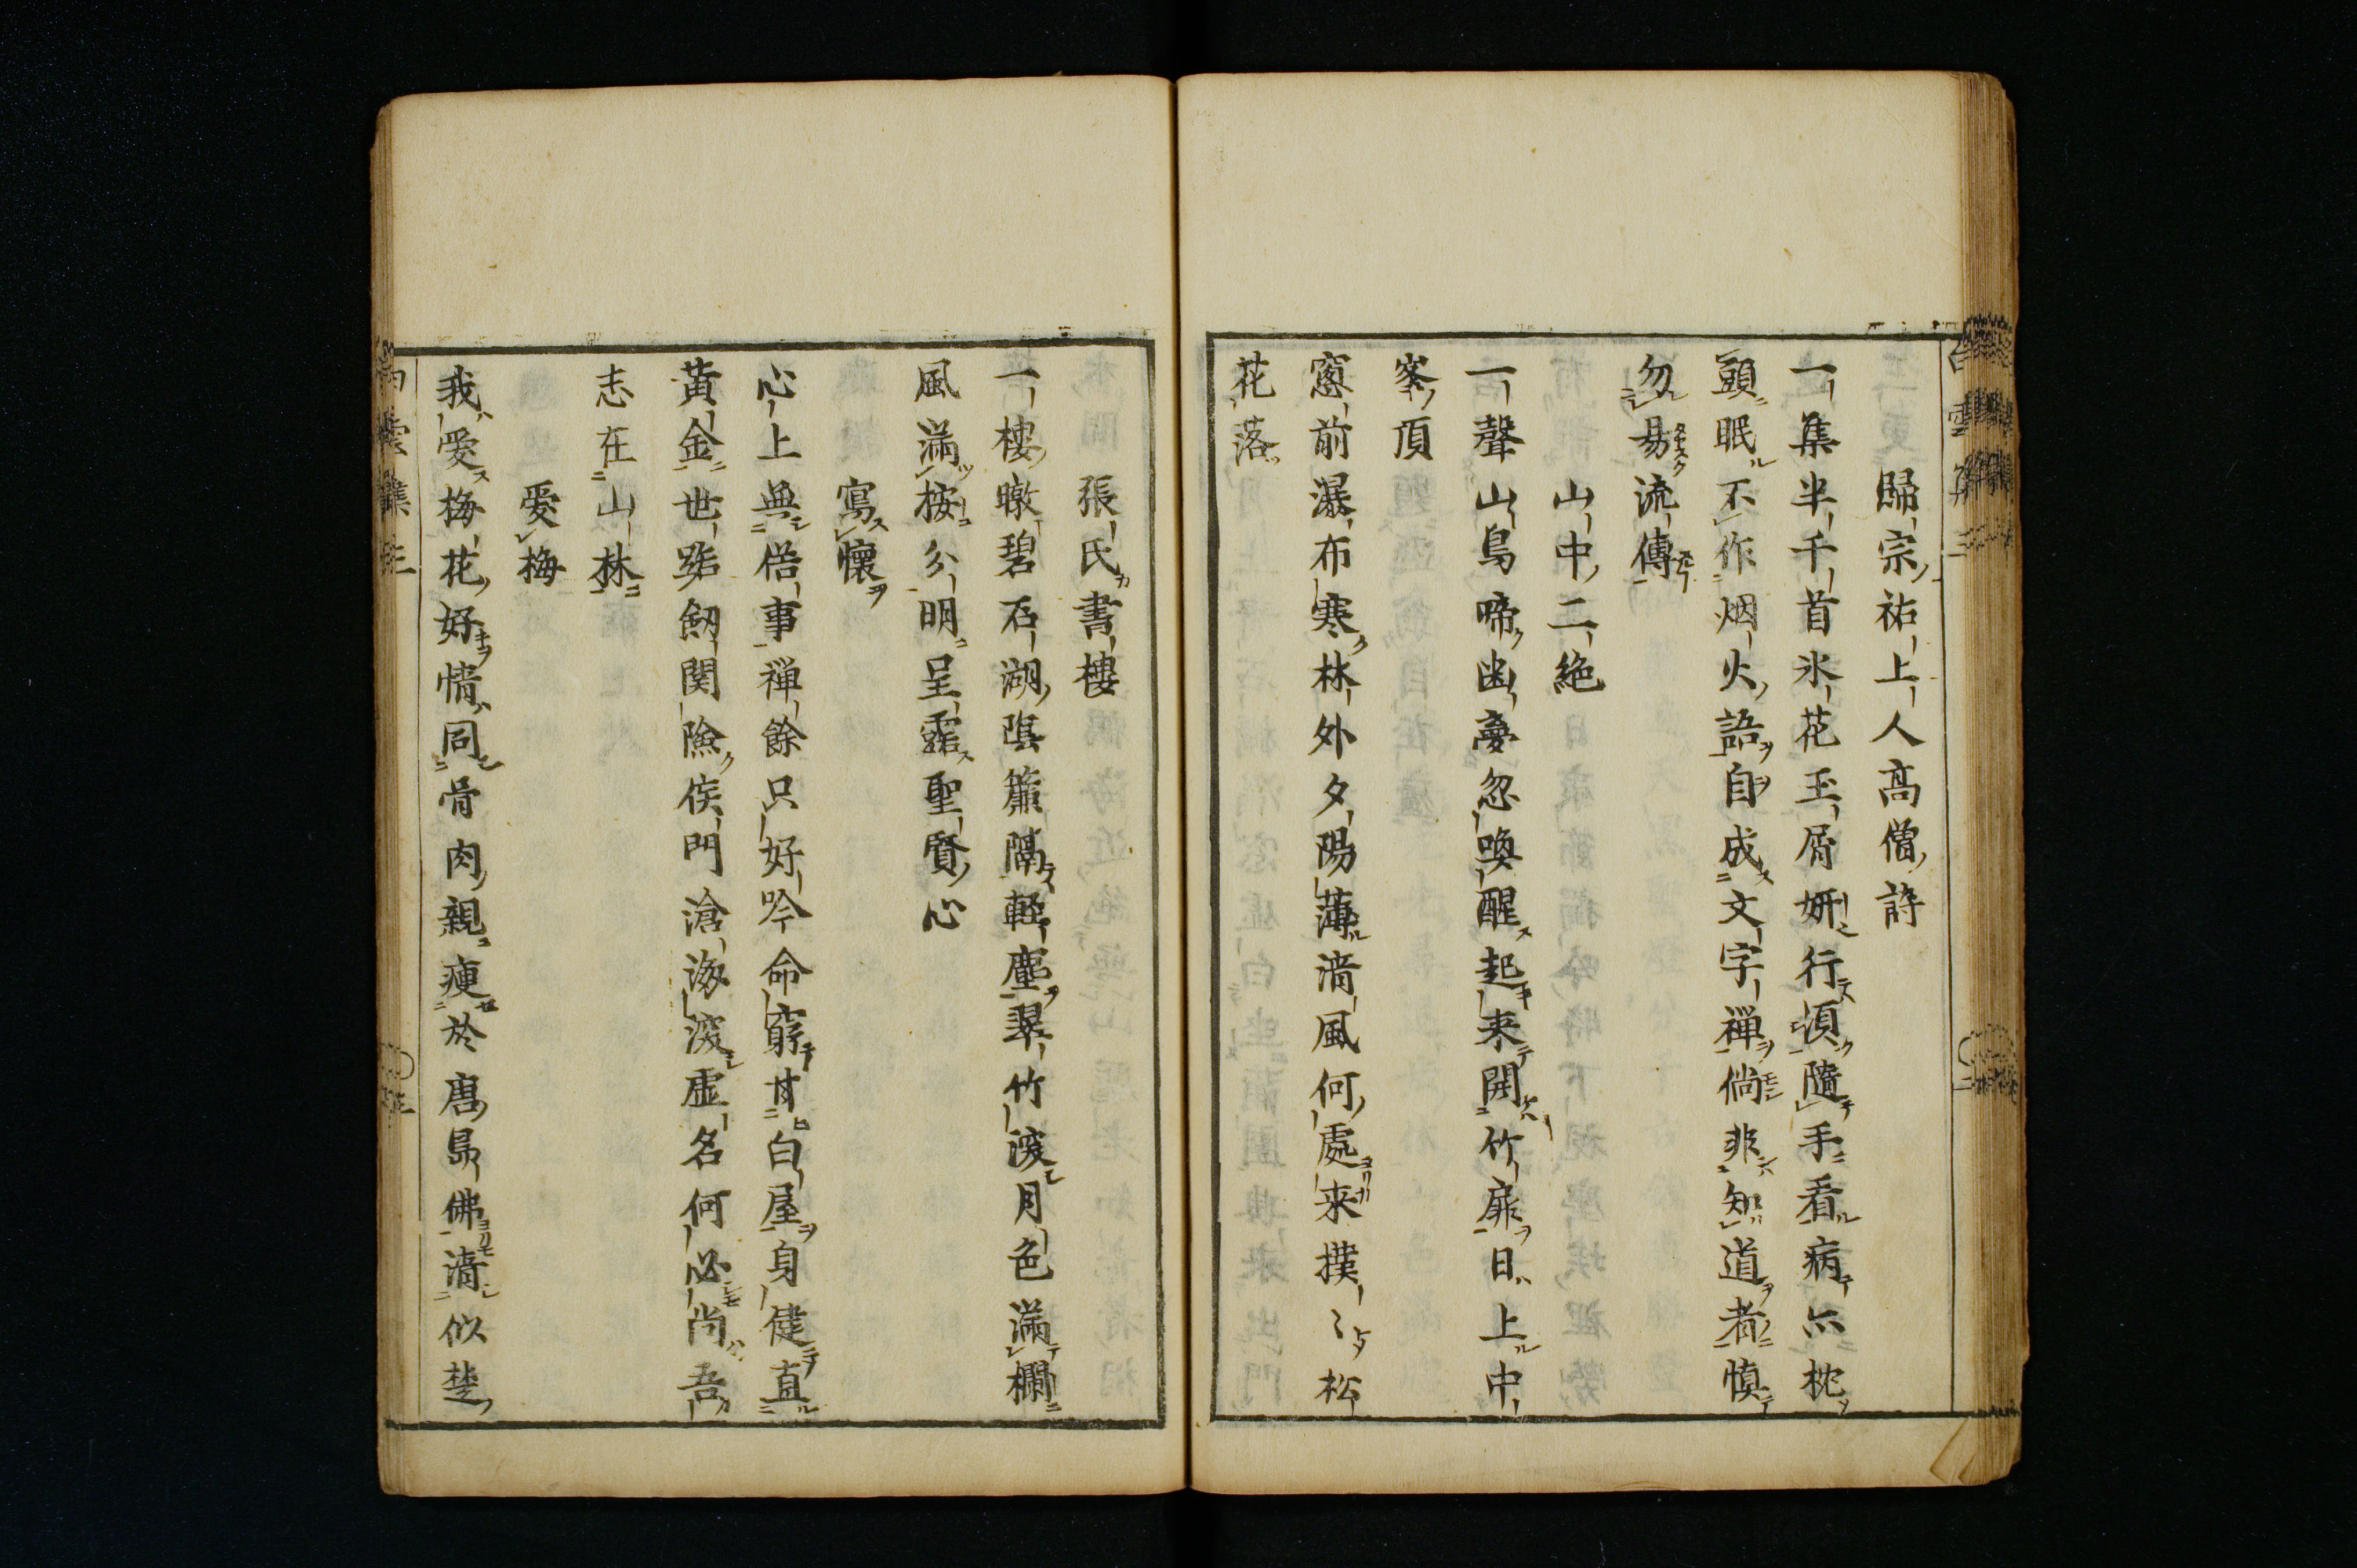 歸宗祐上人高僧詩
一集半千首氷花玉屑妍行須隨手看病六枕
頭眠不作烟火語自成文字禅倘非知道者慎
勿易流傳
山中二絶
一聲山鳥啼幽夢忽喚醒起来開竹扉日上中
峯頂
窓前瀑布寒林外夕陽薄清風何處来撲〻松
花落
張氏書樓
一樓暾碧石湖陰簾隔軽塵翠竹深月色滿欄
風滿桉分明呈露聖賢心
寫懷
心上無俗事禅餘只好吟命窮甘白屋身健直
黄金世路劔関險侯門滄海深虚名何必尚吾
志在山林
愛梅
我愛梅花好情同骨肉親瘦於唐島佛清似楚